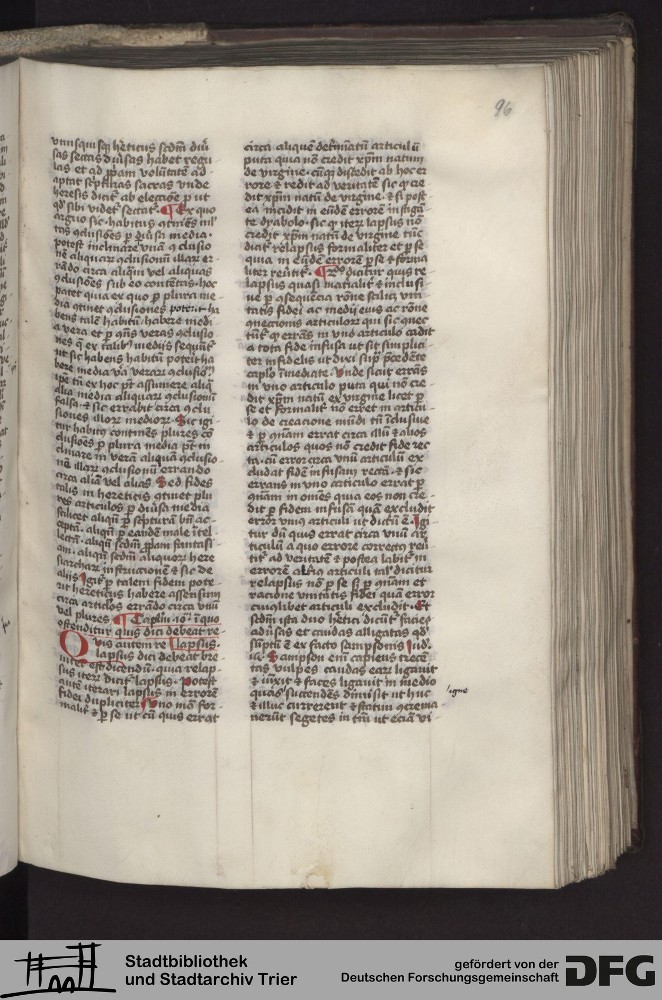 96
vnusquisq hereticus scdm diu
sas sectas diusas habet regu
las et ad ppam volūtatē ad
aptat scpturas sacras vnde
heresis dicit ab eleccōe p ut
qd sibi videt sectat Ex quo
arguo sic habitus
tas ꝯclusiōes p diusa media
potest inclinare vnā ꝯclusio
nē aliquar ꝯclusionū illar er
rādo circa aliqm vel aliquas
ꝯclusiōes sub eo contētas hoc
patet quia ex quo p plura me
dia ꝯtinet ꝯclusiones poterit ha
bens talē habitū habere medi
a vera et p ꝯns veras ꝯclusio
nes q ex talib medijs sequūt
ut sic habens habitū poterit ha
bere media vera verar ꝯclusiōū
ipe tn ex hoc pt assumere aliq
alia media aliquar ꝯclusionū
falsa & sic errabit circa ꝯclu
siones illor medior Sic igi
tur habitus continēs plures cō
clusiōes p plura media pt in
clinare in verā aliquā ꝯclusio
nē illar ꝯclusionū errando
circa aliā vel alias Sed fides
talis in hereticis ꝯtinet plu
res articulos p diusa media
scilicet aliqm p scpturā bn ac
ceptā aliqm p eandē male ītel
lectā aliqm scdm ppam fantasi
am aliqm scdm aliquor here
siarchar instructionē & sic de
alijs Igit p talem fidem pote
rit hereticus habere assensum
circa articlos errādo circa vnū
vel plures Caplm 10m ī quo
ostenditur quis dici debeat re
Quis autem re lapsus
lapsus dici debeat bre
uiter est dicendū quia relap
sus iterū dicit lapsus Potest
autē iterari lapsus in errorem
fidei dupliciter vno mō for
malit & p se ut cū quis errat
circa aliquē determīatū articulū
puta quia nō credit xpm natum
de virgine cūq discedit ab hoc er
rore & redit ad veritatē sic q cre
dit xpm natū de virgine & si post
ea incidit in eūdē errorem instigā
te dyabolo sic q iterū lapsus nō
credit xpm natū de virgine tūc
dicit relapsus formaliter et p se
quia in eūdem errorē p se & forma
liter reuertit 2o dicitur quis re
lapsus quasi materialit & inclusi
ue p ꝯsequēcia rōne scilicet vni
tatis fidei ac medij eius ac rōne
ꝯnexionis articulor qui sic ꝯnec
tūt q errans in vno articulo cadit
a tota fide infusa ut sit simplici
ter infidelis ut dixi sup pcedēte
caplo īmediate Vnde sicut errās
in vno articulo puta qui nō cre
dit xpm natū ex virgine licet p
se et formalit nō erret in articu
lo de creacione mūdi tn īclusiue
& p ꝯnam errat circa illū & alios
articulos quos nō credit fide rec
ta cū error circa vnū articulū ex
cludat fidē infusam rectā & sic
errans in vno articulo errat p
ꝯnam in omēs quia eos non cre
dit p fidem infusā quā excludit
error vnius articuli ut dictū ē Igi
tur dū quis errat circa vnū ar
ticulū a quo errore correctus reū
tit ad veritatē & postea labit in
errorem alius articuli tal dicitur
relapsus nō p se si p ꝯnam et
racione vnitatis fidei quā error
cuiuslibet articuli excludit Et
scdm ista duo hetici dicūt facies
adusas et caudas alligatas qd
sūptū ē ex facto sampsonis Iud
ic Sampson em capiens trecē
tas vulpes caudas ear ligauit
& iūxit & faces ligauit in medio
quas succendēs dimisit ut huc
& illuc currerent & statim ꝯcrema
uerūt segetes in tm ut eciā vi
igne
Stadtbibliothek
und Stadtarchiv Trier
gefördert von der
Deutschen Forschungsgemeinschaft
DFG